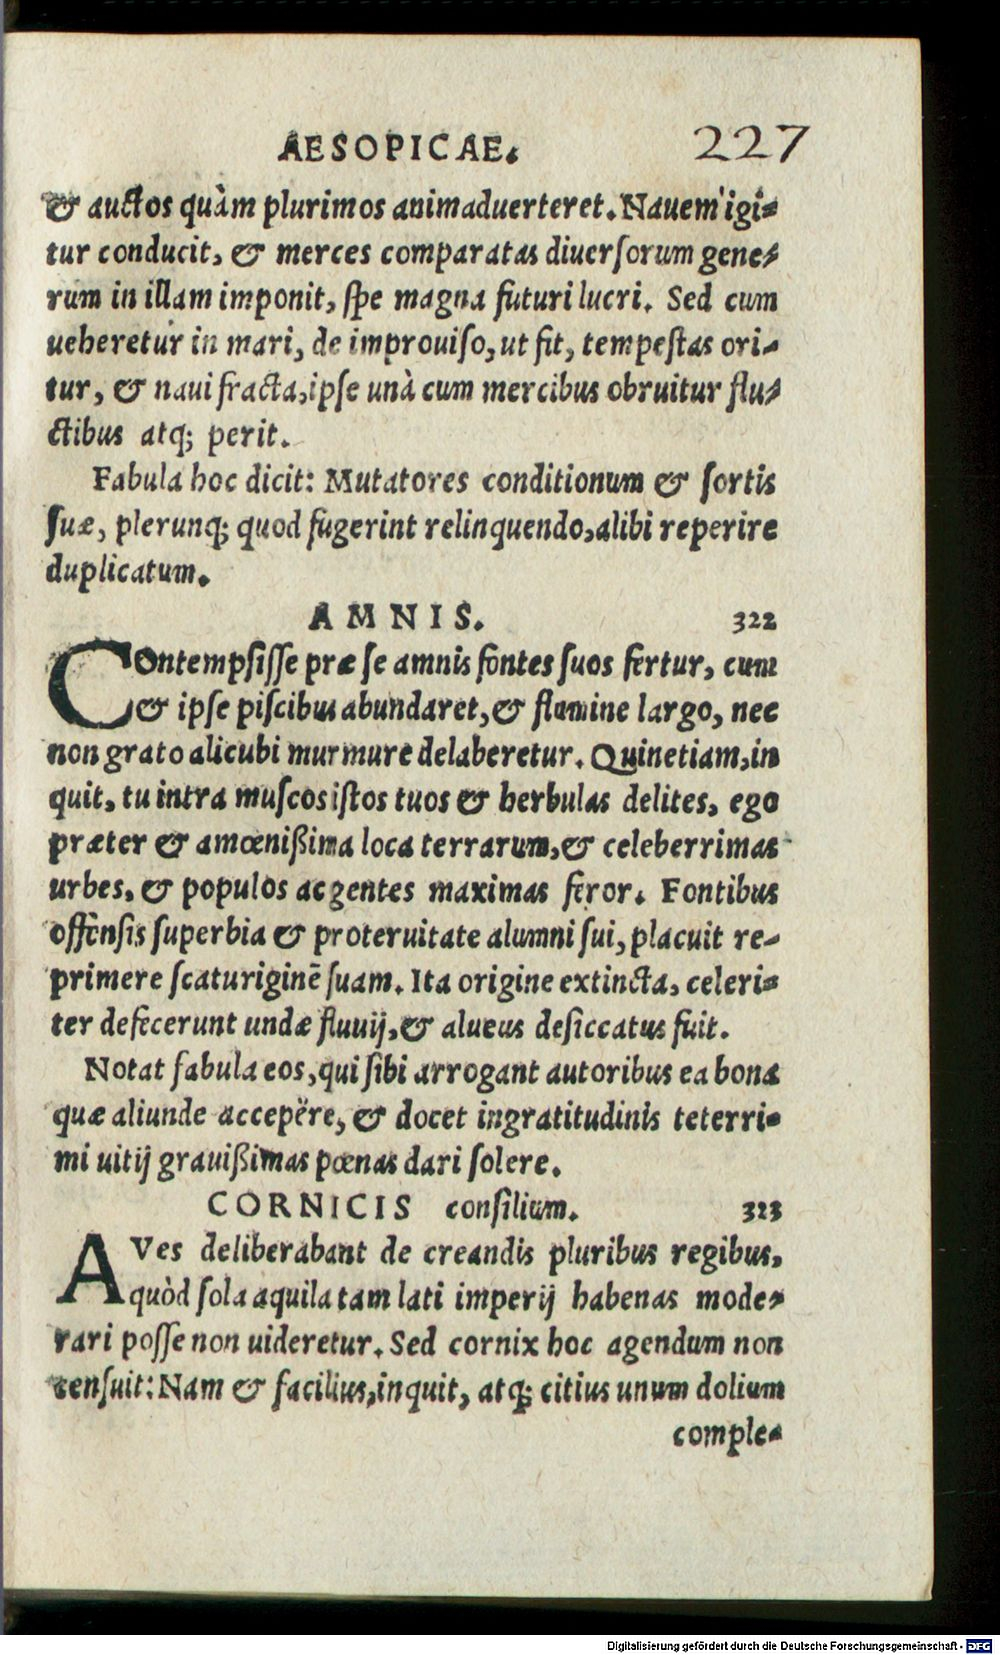 AESOPICAE. 227
& auctos quàm plurimos animaduerteret. Nauem igi-
tur conducit, & merces comparatas diuersorum gene-
rum in illam imponit, spe magna futuri lucri. Sed cum
ueheretur in mari, de improuiso, ut fit, tempestas ori-
tur, & naui fracta, ipse unà cum mercibus obruitur flu-
ctibus atq; perit.
Fabula hoc dicit: Mutatores conditionum & sortis
suæ, plerunq; quod fugerint relinquendo, alibi reperire
duplicatum.
AMNIS. 322
Contempsisse præ se amnis fontes suos fertur, cum
& ipse piscibus abundaret, & flumine largo, nec
non grato alicubi murmure delaberetur. Quinetiam, in
quit, tu intra muscos istos tuos & herbulas delites, ego
præter & amœnißima loca terrarum, & celeberrimas
urbes, & populos ac gentes maximas feror. Fontibus
offensis superbia & proteruitate alumni sui, placuit re-
primere scaturiginẽ suam. Ita origine extincta, celeri-
ter defecerunt undæ fluuij, & alueus desiccatus fuit.
Notat fabula eos, qui sibi arrogant autoribus ea bona
quæ aliunde accepëre, & docet ingratitudinis teterri-
mi uitij grauißimas pœnas dari solere.
CORNICIS consilium. 323
AVes deliberabant de creandis pluribus regibus,
quòd sola aquila tam lati imperij habenas mode-
rari posse non uideretur. Sed cornix hoc agendum non
censuit: Nam & facilius, inquit, atq; citius unum dolium
comple-
Digitalisierung gefördert durch die Deutsche Forschungsgemeinschaft - DFG